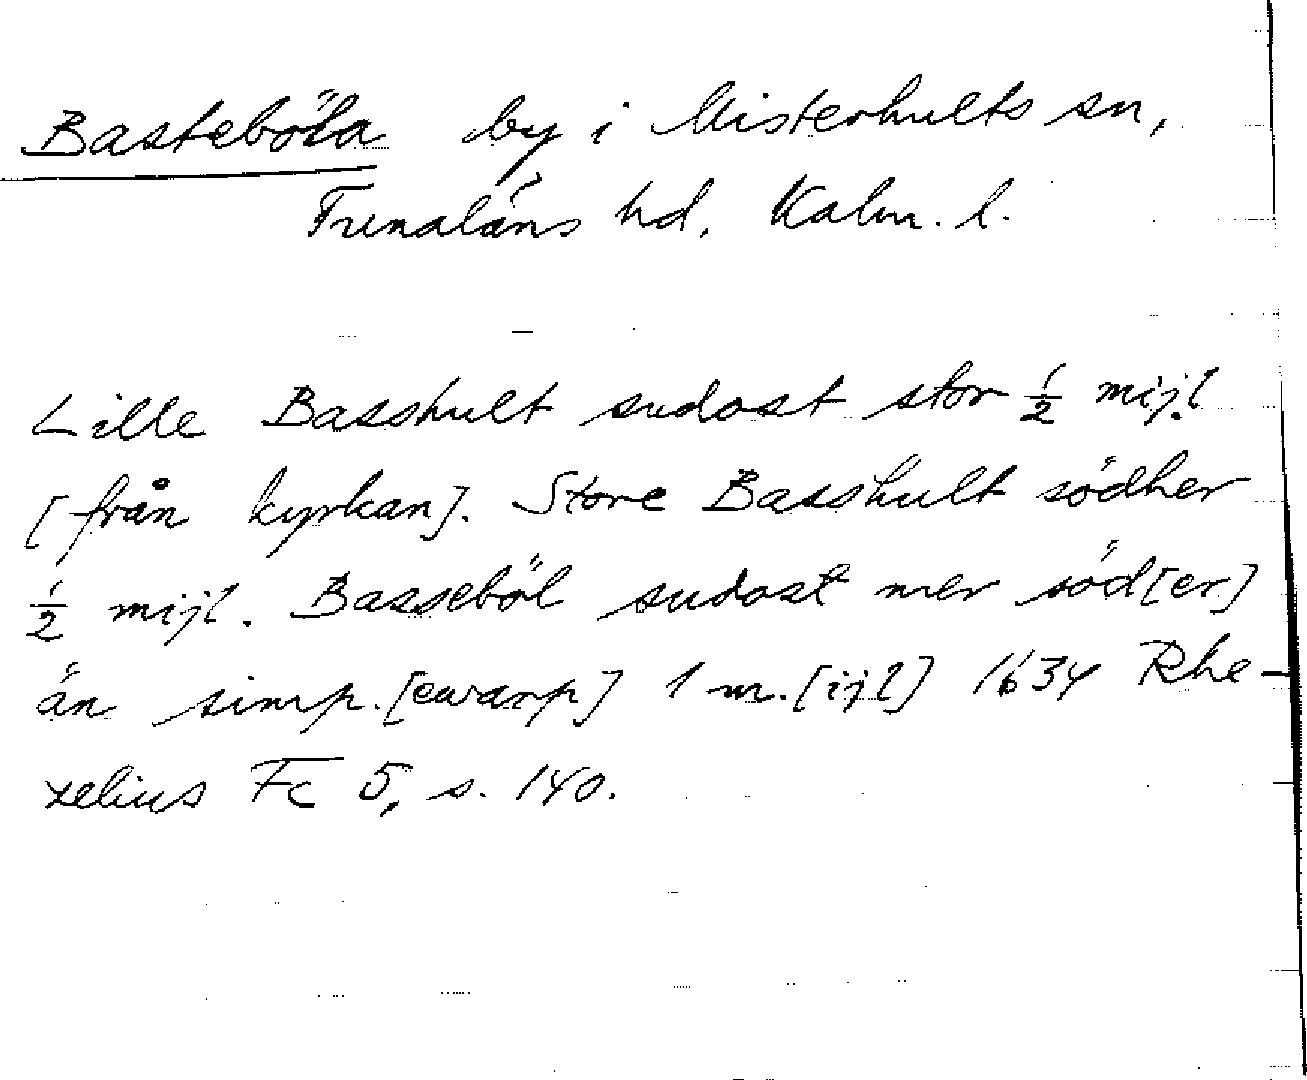 Basteböla by i Misterhults sn,
Tunaläns hd, Kalm. l.
Lille Basshult sudost stor ½ mijl
[från kyrkan]. Store Basshult södher
½ mijl. Basseböl sudost mer söd[er]
än simp.[ewarp] 1 m.[ijl] 1634 Rhe-
zelius Fc 5, s. 140.